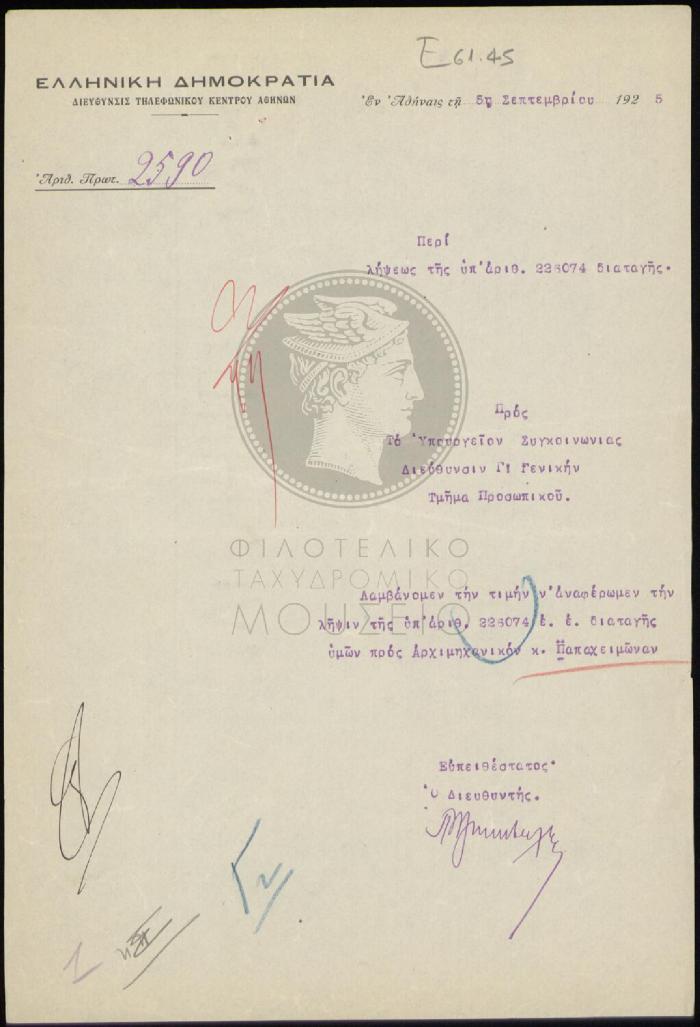 Ε 61.45
ΕΛΛΗΝΙΚΗ ΔΗΜΟΚΡΑΤΙΑ
ΔΙΕΥΘΥΝΣΙΣ ΤΗΛΕΦΩΝΙΚΟΥ ΚΕΝΤΡΟΥ ΑΘΗΝΩΝ
Ἐν Ἀθήναις τῇ 5η Σεπτεμβρίου 1925
Ἀριθ. Πρωτ. 2590
Περί
λήψεως τῆς ὑπ' ἀριθ. 226074 διαταγῆς.
Πρός
Τό Ὑπουργεῖον Συγκοινωνίας
Διεύθυνσιν Γ! Γενικήν
Τμῆμα Προσωπικοῦ.
ΦΙΛΟΤΕΛΙΚΟ
ΤΑΧΥΔΡΟΜΙΚΟ
ΜΟΥΣΕΙΟ
Λαμβάνομεν τήν τιμήν ν'ἀναφέρωμεν τήν
λῆψιν τῆς ὑπ'ἀριθ. 226074 ἐ. ἔ. διαταγῆς
ὑμῶν πρός Ἀρχιμηχανικόν κ. Παπαχειμῶναν
Εὐπειθέστατος
Ὁ Διευθυντής.